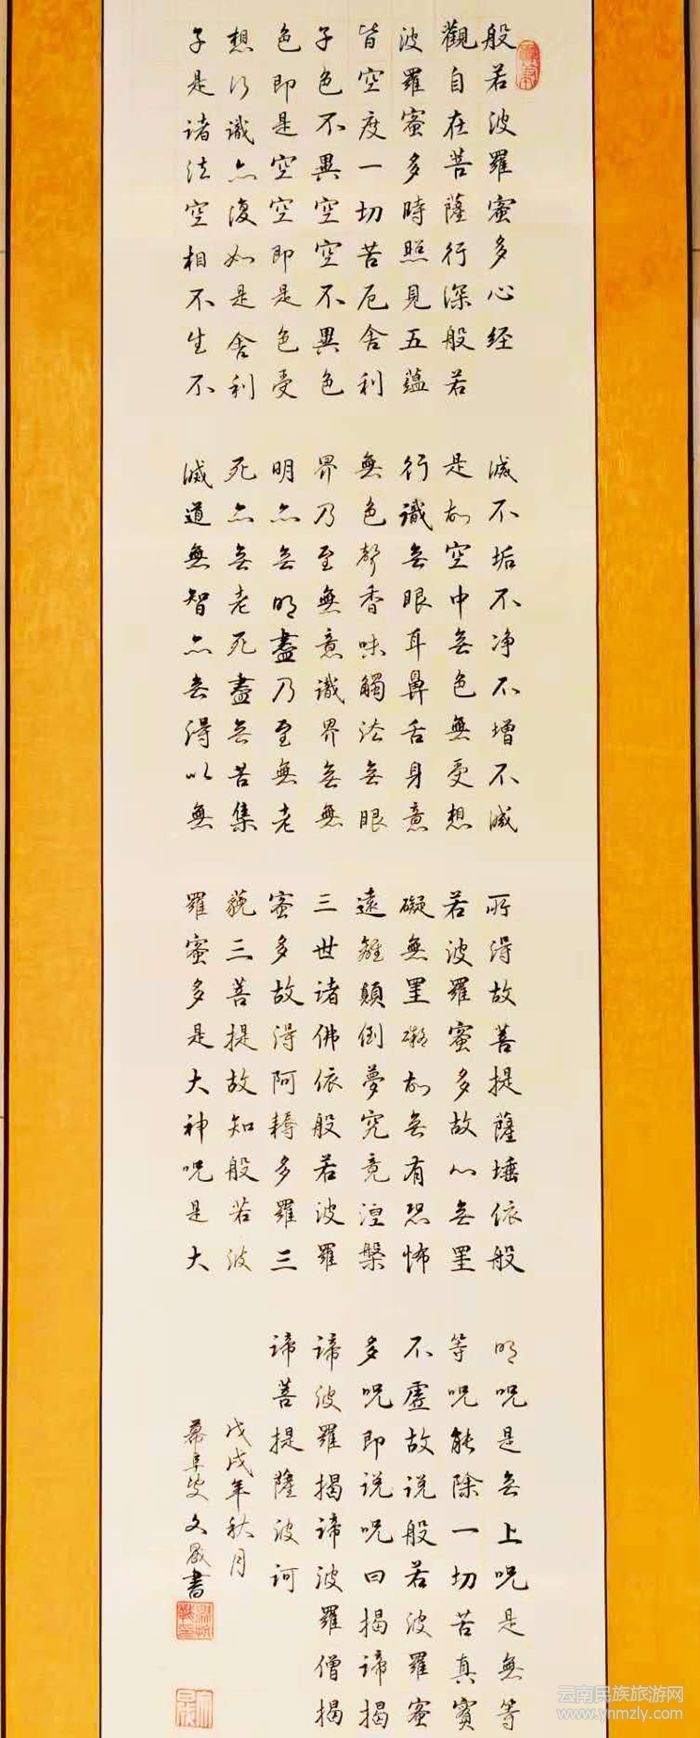 般若波羅蜜多心经
觀自在菩薩行深般若
波羅蜜多時照見五蘊
皆空度一切苦厄舍利
子色不異空空不異色
色即是空空即是色受
想行識亦復如是舍利
子是诸法空相不生不
滅不垢不净不增不減
是故空中無色無受想
行識無眼耳鼻舌身意
無色聲香味觸法無眼
界乃至無意識界無無
明亦無明盡乃至無老
死亦無老死盡無苦集
滅道無智亦無得以無
所得故菩提薩埵依般
若波羅蜜多故心無罣
礙無罣礙故無有恐怖
遠離顛倒夢究竟涅槃
三世诸佛依般若波羅
蜜多故得阿耨多羅三
藐三菩提故知般若波
羅蜜多是大神呪是大
明呪是無上呪是無等
等呪能除一切苦真實
不虛故说般若波羅蜜
多呪即说呪曰揭諦揭
諦波羅揭諦波羅僧揭
諦菩提薩波訶
戊戌年秋月
幕阜叟文晟書
云南民族旅游网
www.ynmzly.com